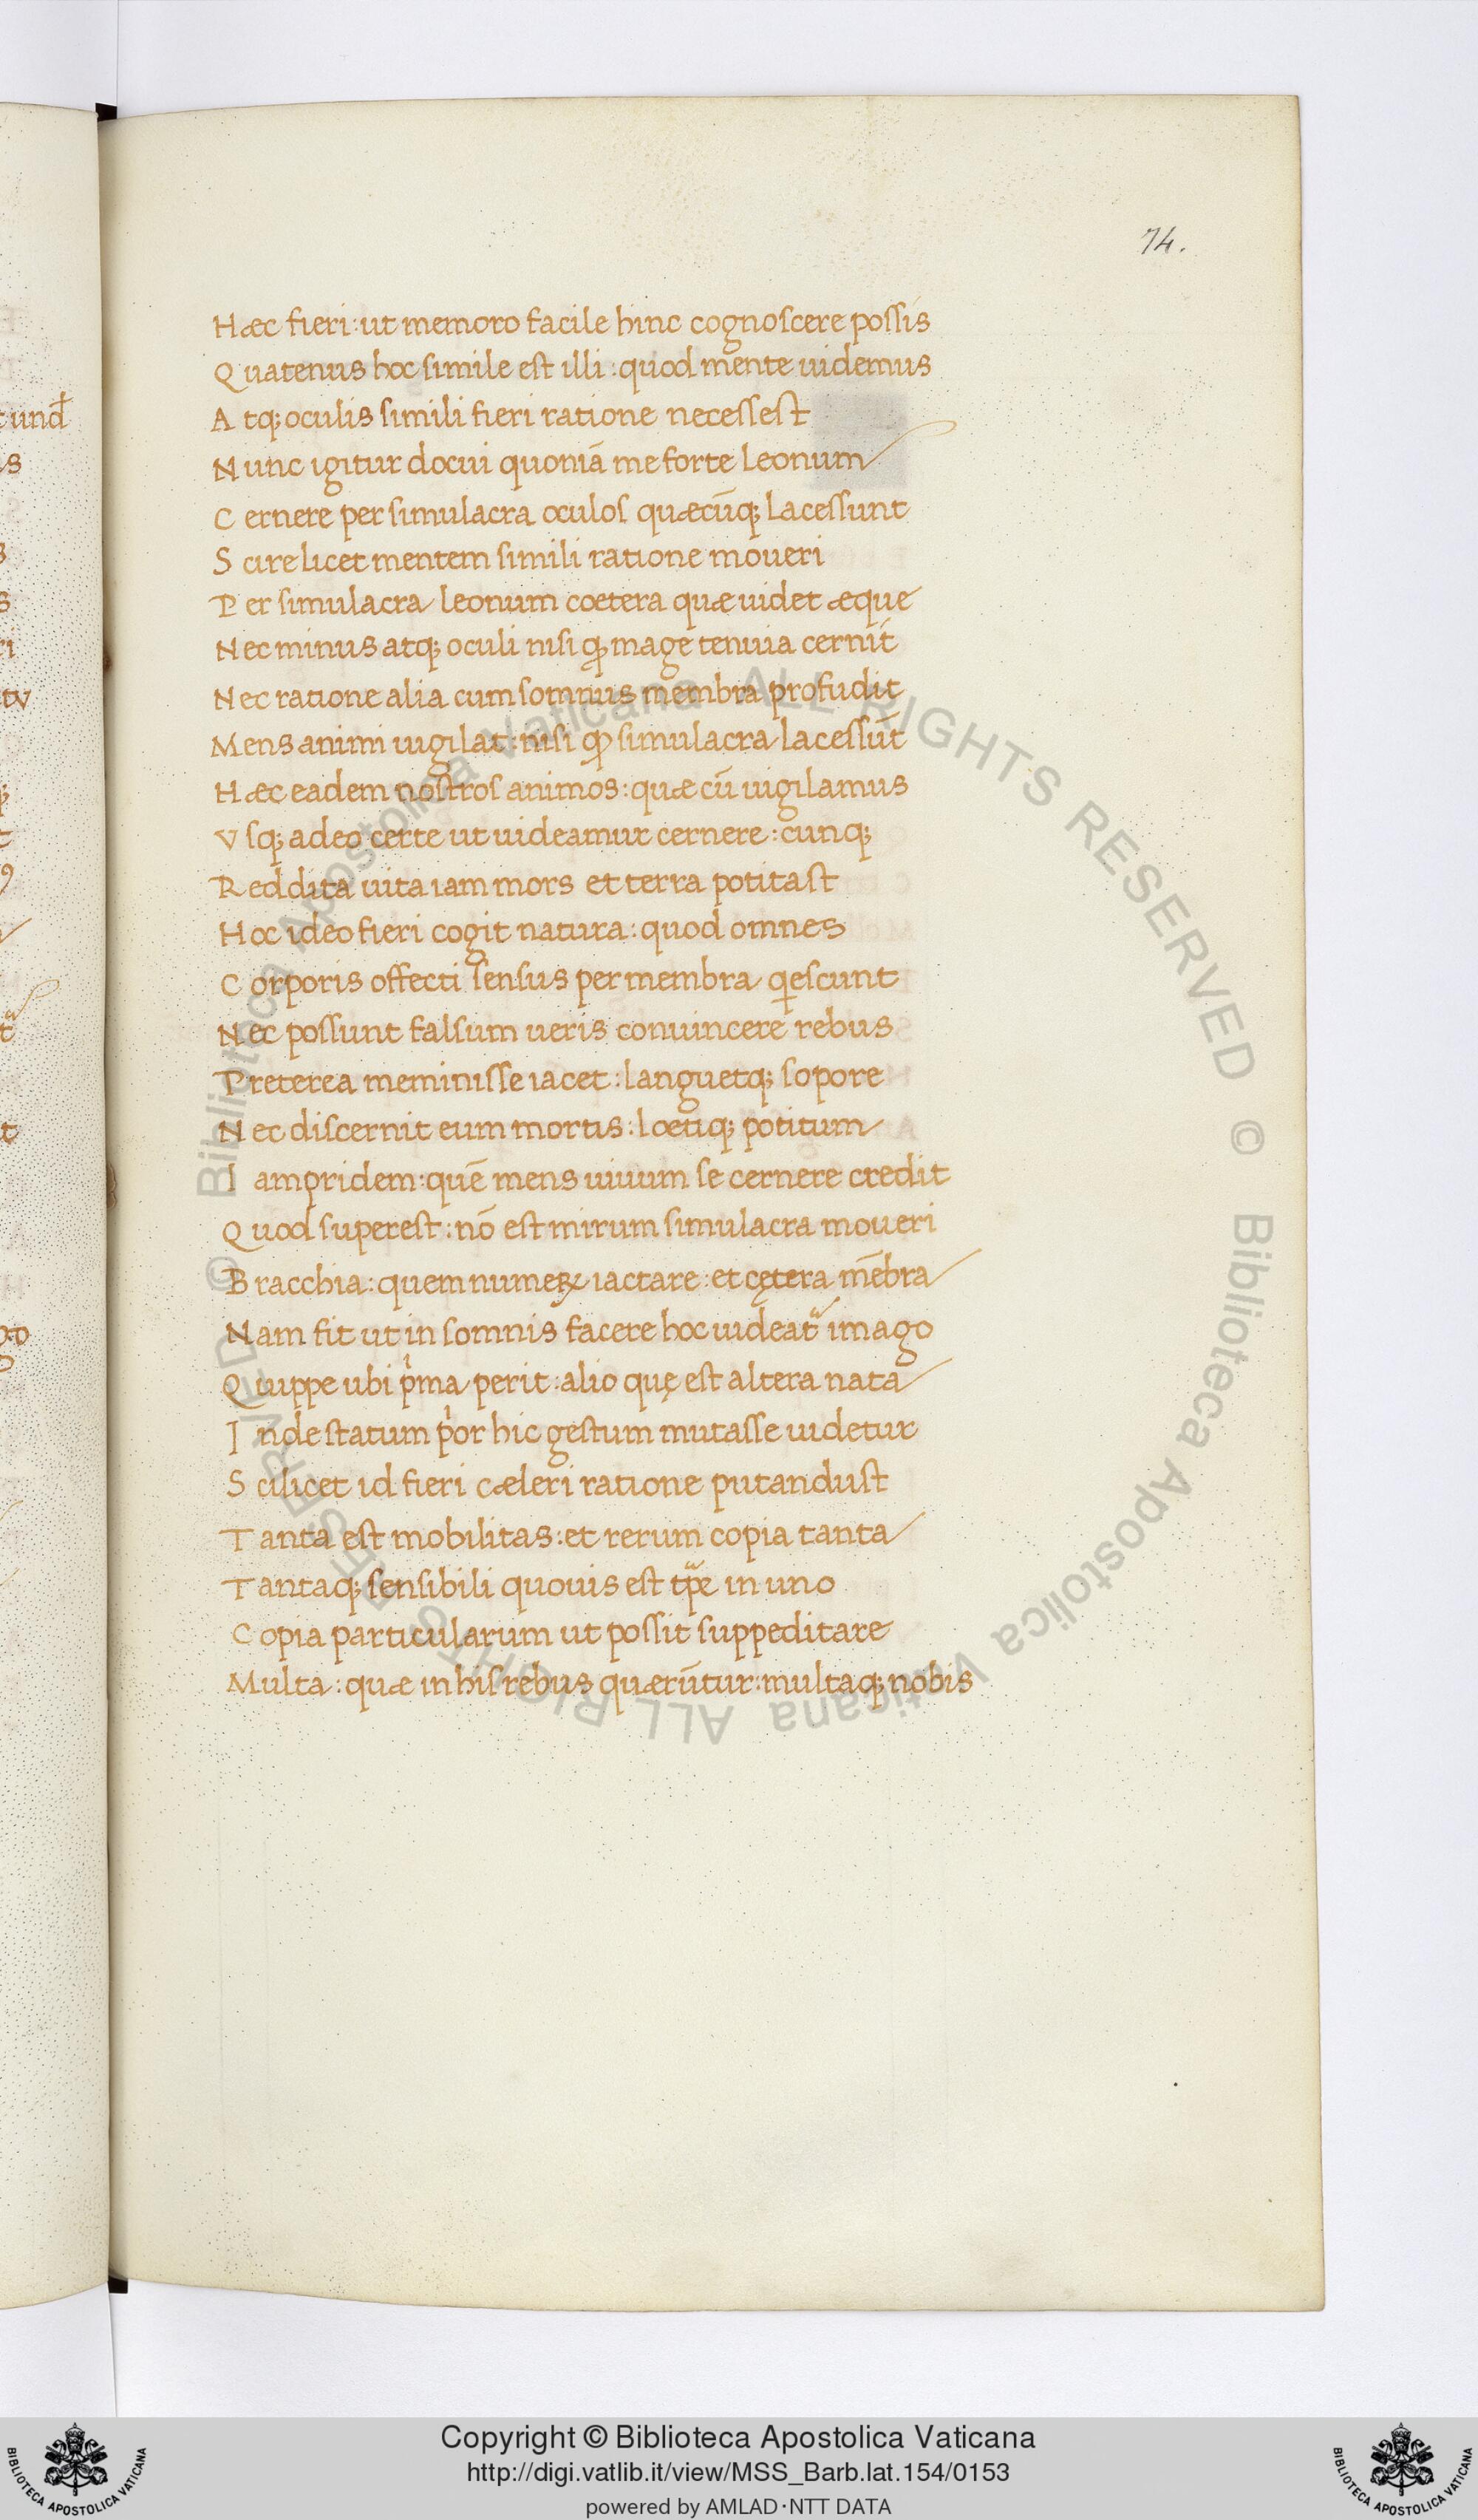 74.
Hæc fieri: ut memoro facile hinc cognoscere possis
Quatenus hoc simile est illi: quod mente uidemus
Atq; oculis simili fieri ratione necessest
Nunc igitur docui quoniā me forte leonum
Cernere per simulacra oculos quæcūq; lacessunt
Scire licet mentem simili ratione moueri
Per simulacra leonum coetera quæ uidet æque
Nec minus atq; oculi nisi ꝙ mage tenuia cernit
Nec ratione alia cum somnus membra profudit
Mens animi uigilat: nisi ꝙ simulacra lacessūt
Hæc eadem nostros animos: quæ cū uigilamus
Vsq; adeo certe ut uideamur cernere: cunq;
Reddita uita iam mors et terra potitast
Hoc ideo fieri cogit natura: quod omnes
Corporis offecti sensus per membra qiescunt
Nec possunt falsum ueris conuincere rebus
Preterea meminisse iacet: languetq; sopore
Nec discernit eum mortis: loetiq; potitum
Iampridem: quē mens uiuum se cernere credit
Quod superest: nō est mirum simulacra moueri
Bracchia: quem numeꝝ iactare: et cętera mēbra
Nam fit ut in somnis facere hoc uideat᷑ imago
Quippe ubi pͥma perit: alio quę est altera nata
Inde statum pͥor hic gestum mutasse uidetur
Scilicet id fieri cæleri ratione putandust
Tanta est mobilitas: et rerum copia tanta
Tantaq; sensibili quouis est tp̄e in uno
Copia particularum ut possit suppeditare
Multa: quæ in his rebus quærūtur: multaq; nobis
© Biblioteca Apostolica Vaticana ALL RIGHTS RESERVED © Biblioteca Apostolica Vaticana ALL RIGHTS RESERVED
Copyright © Biblioteca Apostolica Vaticana
http://digi.vatlib.it/view/MSS_Barb.lat.154/0153
powered by AMLAD·NTT DATA
BIBLIOTECA APOSTOLICA VATICANA
BIBLIOTECA APOSTOLICA VATICANA